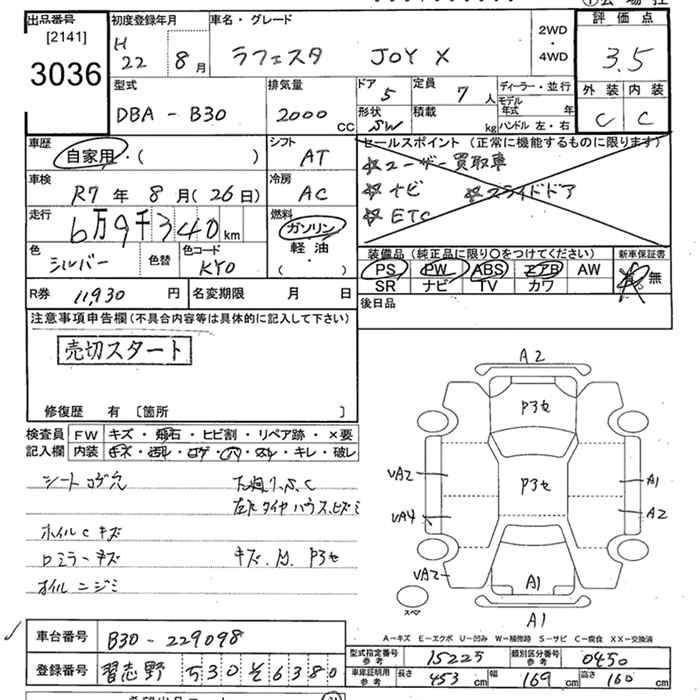 出品番号
[2141]
3036
初度登録年月
H
22 8 月
車名・グレード
ラフェスタ JOY X
2WD
・
4WD
評価点
3.5
外装 内装
C C
型式
DBA - B30
排気量
2000 CC
ドア
5
形状
SW
定員
7 人
積載
kg
ディーラー・並行
モデル
年式 年
ハンドル 左・右
車歴
自家用・( )
シフト
AT
車検
R7 年 8 月 (26 日)
冷房
AC
走行
6万9千340 km
燃料
ガソリン
・
軽油
・
( )
色
シルバー
色替
色コード
KY0
R券 11,930 円
名変期限 月 日
セールスポイント (正常に機能するものに限ります)
☆ユーザー買取車
☆ナビ ☆スライドドア
☆ETC
装備品 (純正品に限り○をつけてください)
PS PW ABS エアB AW
SR ナビ TV カワ
新車保証書
有・無
後日品
注意事項申告欄(不具合内容等は具体的に記入して下さい)
売切スタート
修復歴 有 〔箇所 〕
検査員
記入欄
FW キズ・飛石・ヒビ割・リペア跡・×要
内装 キズ・汚レ・コゲ・穴・スレ・キレ・破レ
シートコゲ穴
下廻リ.S.C
左右タイヤハウス.ヒズミ
ホイルC キズ
ロミラーキズ
キズ.M. P3セ
オイルニジミ
A2
P3セ
UA2
P3セ
A1
UA4
A2
UA2
A1
スペア
A1
A-キズ E-エクボ U-凹み W-補修跡 S-サビ C-腐食 XX-交換済
車台番号 B30-229098
登録番号 習志野 530 そ 6380
型式指定番号
参考
15225
類別区分番号
参考
0450
車庫証明用
参考
長さ 453 cm
幅 169 cm
高さ 160 cm